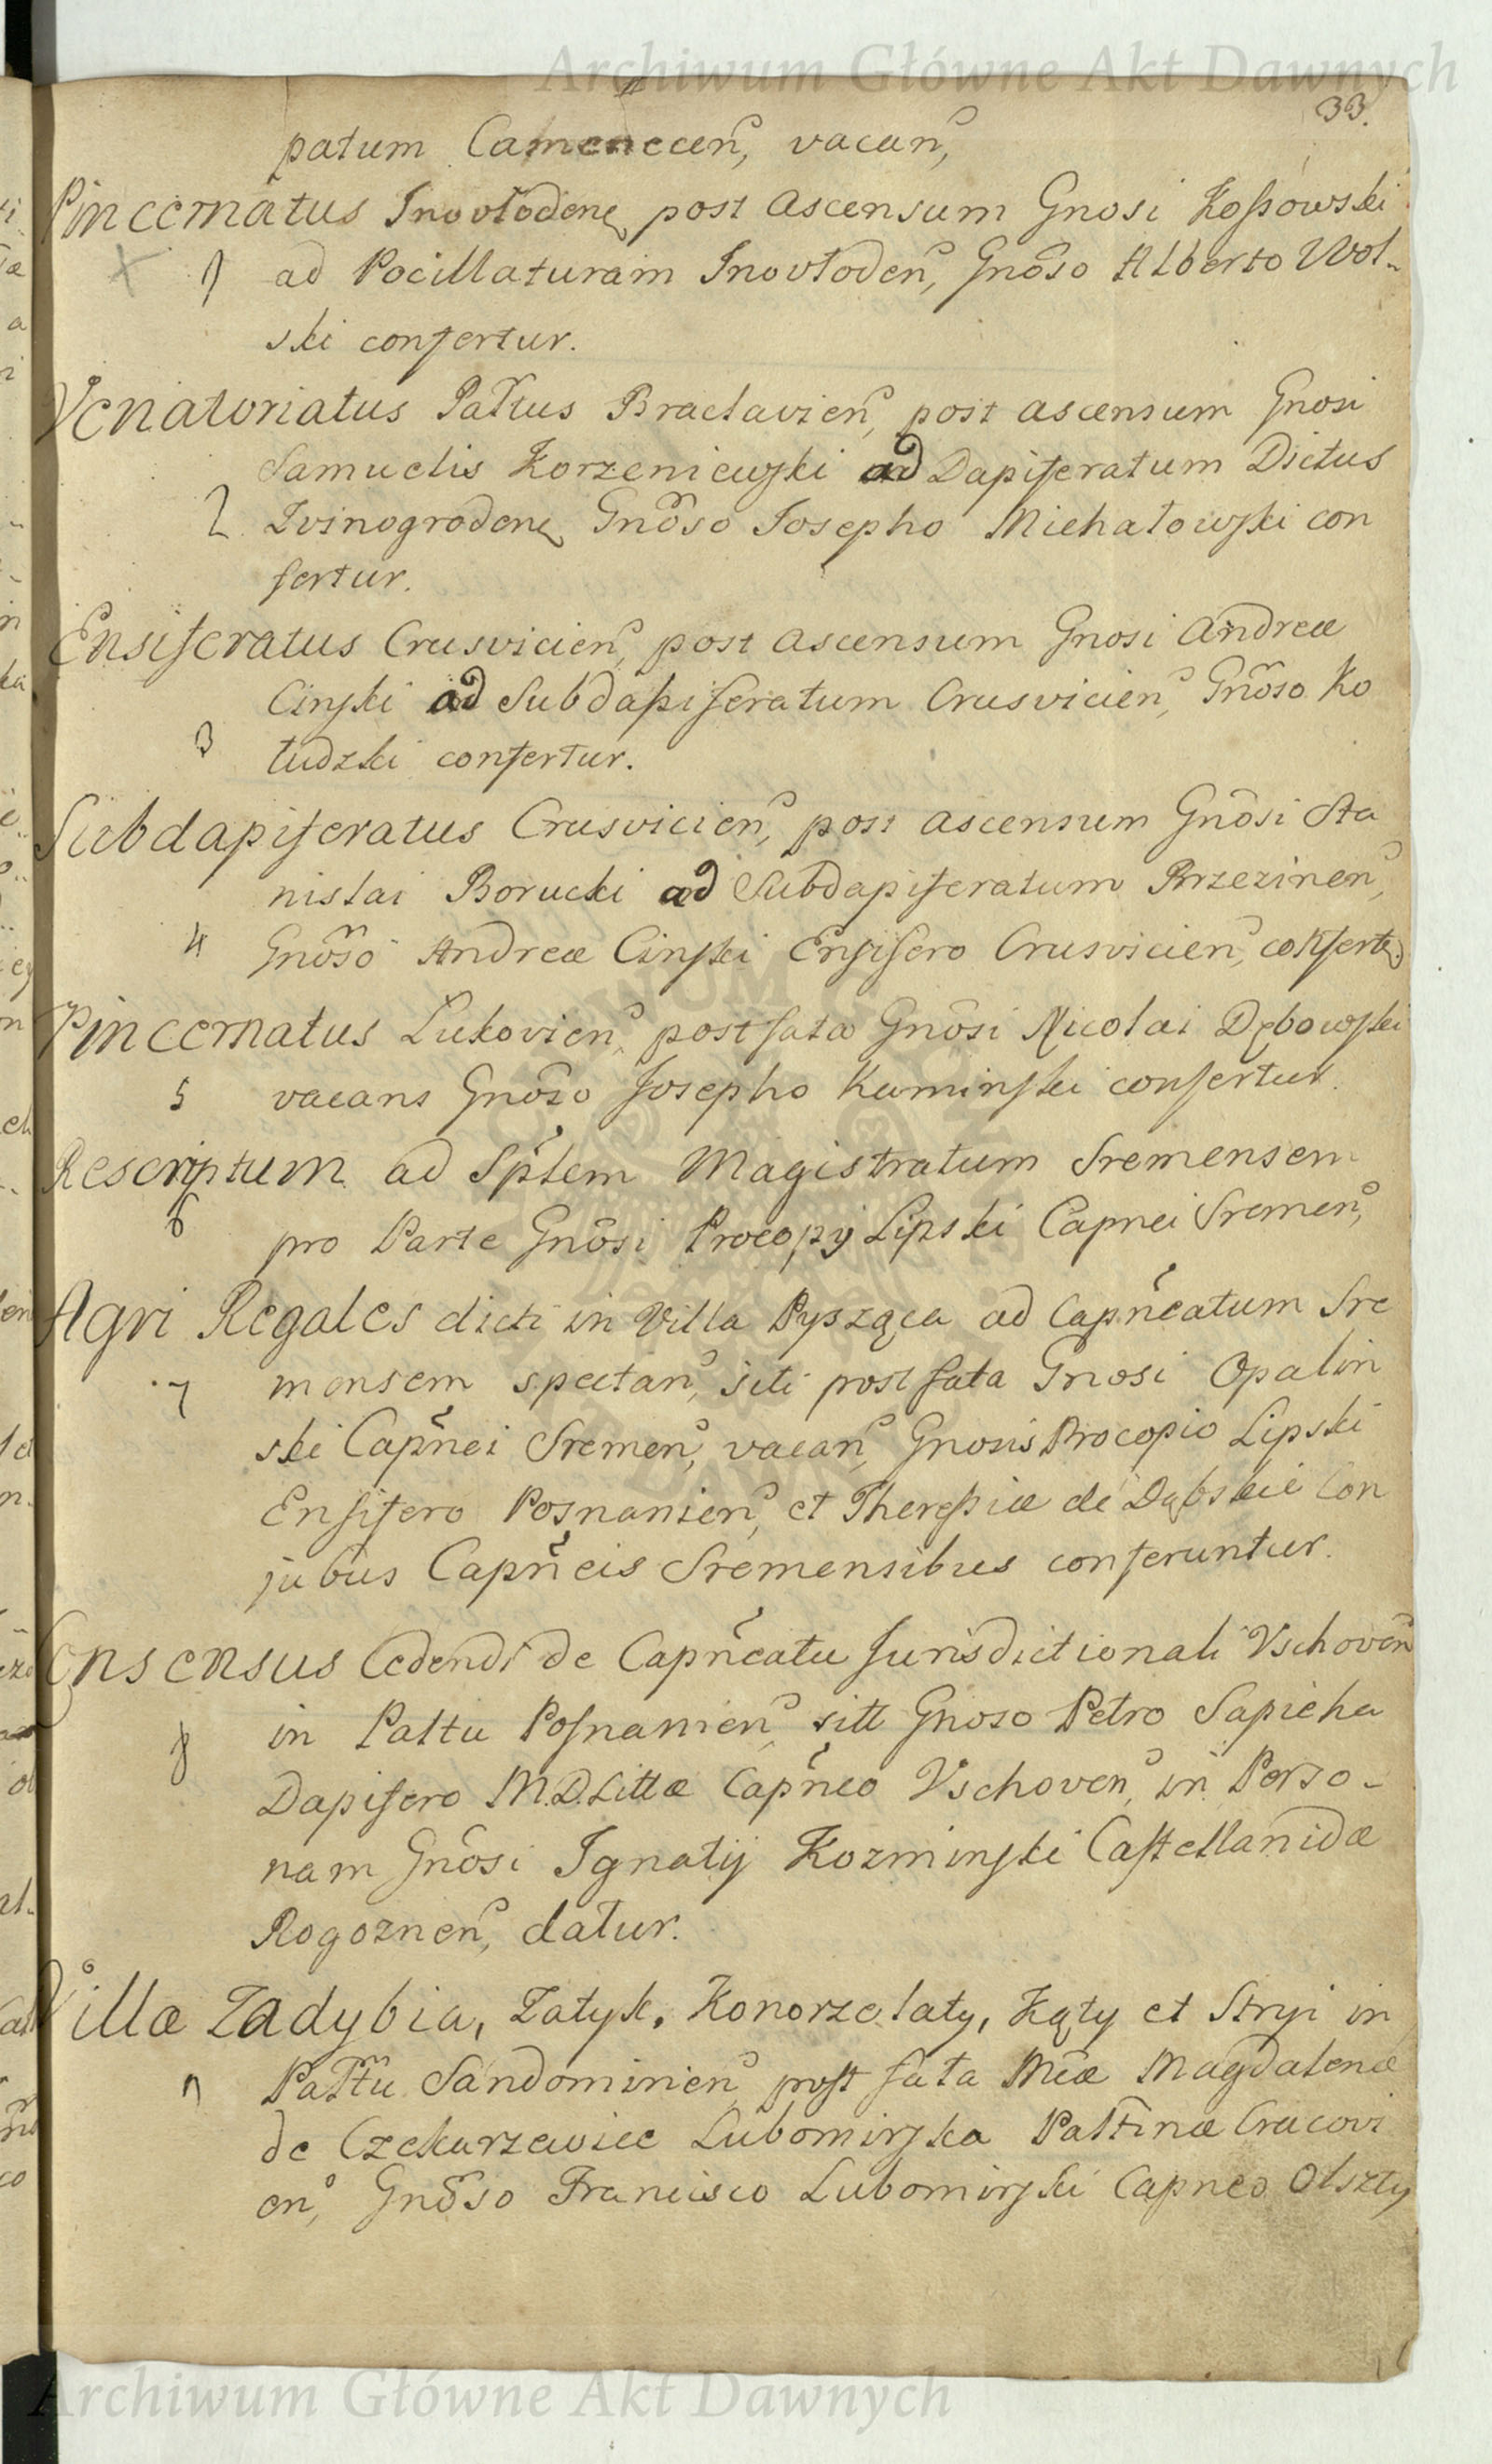 Archiwum Główne Akt Dawnych
33.
patum Camenecen, vacan,
Pincernatus Inovłodens post ascensum Gnosi Kossowski
1 ad Pocillaturam Inovłoden, Gnoso Alberto Wol-
ski confertur.
Venatoriatus Pałtus Braclavien, post ascensum Gnosi
Samuelis Korzeniewski ad Dapiferatum Dictus
2 Zvinogrodens Gnoso Josepho Michałowski con
fertur.
Ensiferatus Crusvicien, post ascensum Gnosi Andreæ
Cinski ad Subdapiferatum Crusvicien, Gnoso Ko
3 łudzki confertur.
Subdapiferatus Crusvicien, post ascensum Gnosi Sta
nislai Borucki ad Subdapiferatum Brzezinen,
4 Gnoso Andreæ Cinski Ensifero Crusvicien, confertr
Pincernatus Lukovien, post fata Gnosi Nicolai Dębowski
5 vacans Gnoso Josepho Kaminski confertur.
Rescriptum ad Sptem Magistratum Sremensem
6 pro Parte Gnosi Procopij Lipski Capnei Sremen,
Agri Regales dicti in Villa Pysząca ad Capneatum Sre
7 mensem spectan, siti post fata Gnosi Opalin
ski Capnei Sremen, vacan, Gnosis Procopio Lipski
Ensifero Posnanien, et Theressiæ de Dąbskie Con
jubus Capneis Sremensibus conferuntur.
Consensus Cedendi de Capneatu Jurisdictionali Vschoven
in Pałtu Posnanien, sitt Gnoso Petro Sapieha
8 Dapifero M.D.Littæ Capneo Vschoven, in Perso-
nam Gnosi Ignatij Kozminski Castellanidæ
Rogoznen, datur.
Villæ Zadybia, Zatyk, Konorzolaty, Kąty et Stryi in
9 Pałtu Sandomirien, post fata Mcæ Magdalenæ
de Czekarzewice Lubomirska Pałtinæ Cracovi
en, Gnoso Francisco Lubomirski Capneo Olszty
Archiwum Główne Akt Dawnych